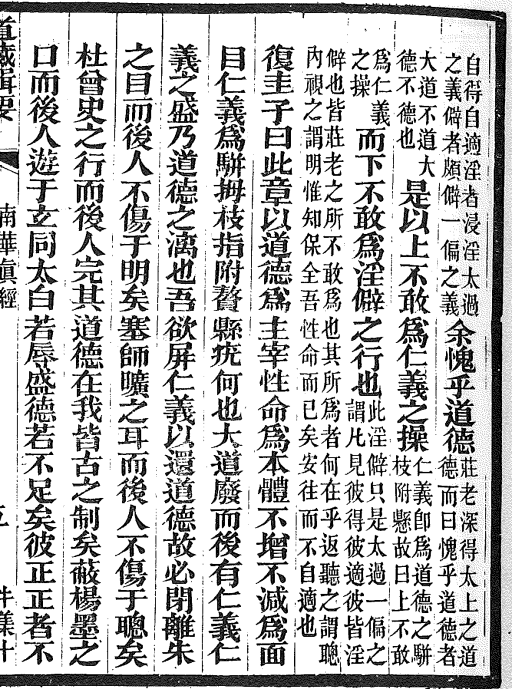 自得自適淫者浸淫太過
之義僻者頗僻一偏之義
余愧乎道德
莊老深得太上之道
德而曰愧乎道德者
大道不道大
德不德也
是以上不敢爲仁義之操
仁義卽爲道德之駢
枝附懸故曰上不敢
爲仁義
之操
而下不敢爲淫僻之行也
此淫僻只是太過一偏之
謂凡見彼得彼適彼皆淫
僻也皆莊老之所不敢爲也其所爲者何在乎返聽之謂聰
內視之謂明惟知保全吾性命而已矣安往而不自適也
復圭子曰此章以道德爲主宰性命爲本體不增不減爲面
目仁義爲駢拇枝指附贅縣疣何也大道廢而後有仁義仁
義之盛乃道德之漓也吾欲屏仁義以還道德故必閉離朱
之目而後人不傷于明矣塞師曠之耳而後人不傷于聰矣
杜曾史之行而後人完其道德在我皆古之制矣蔽楊墨之
口而後人遊于玄同太白若辱盛德若不足矣彼正正者不
道藏輯要
南華眞經